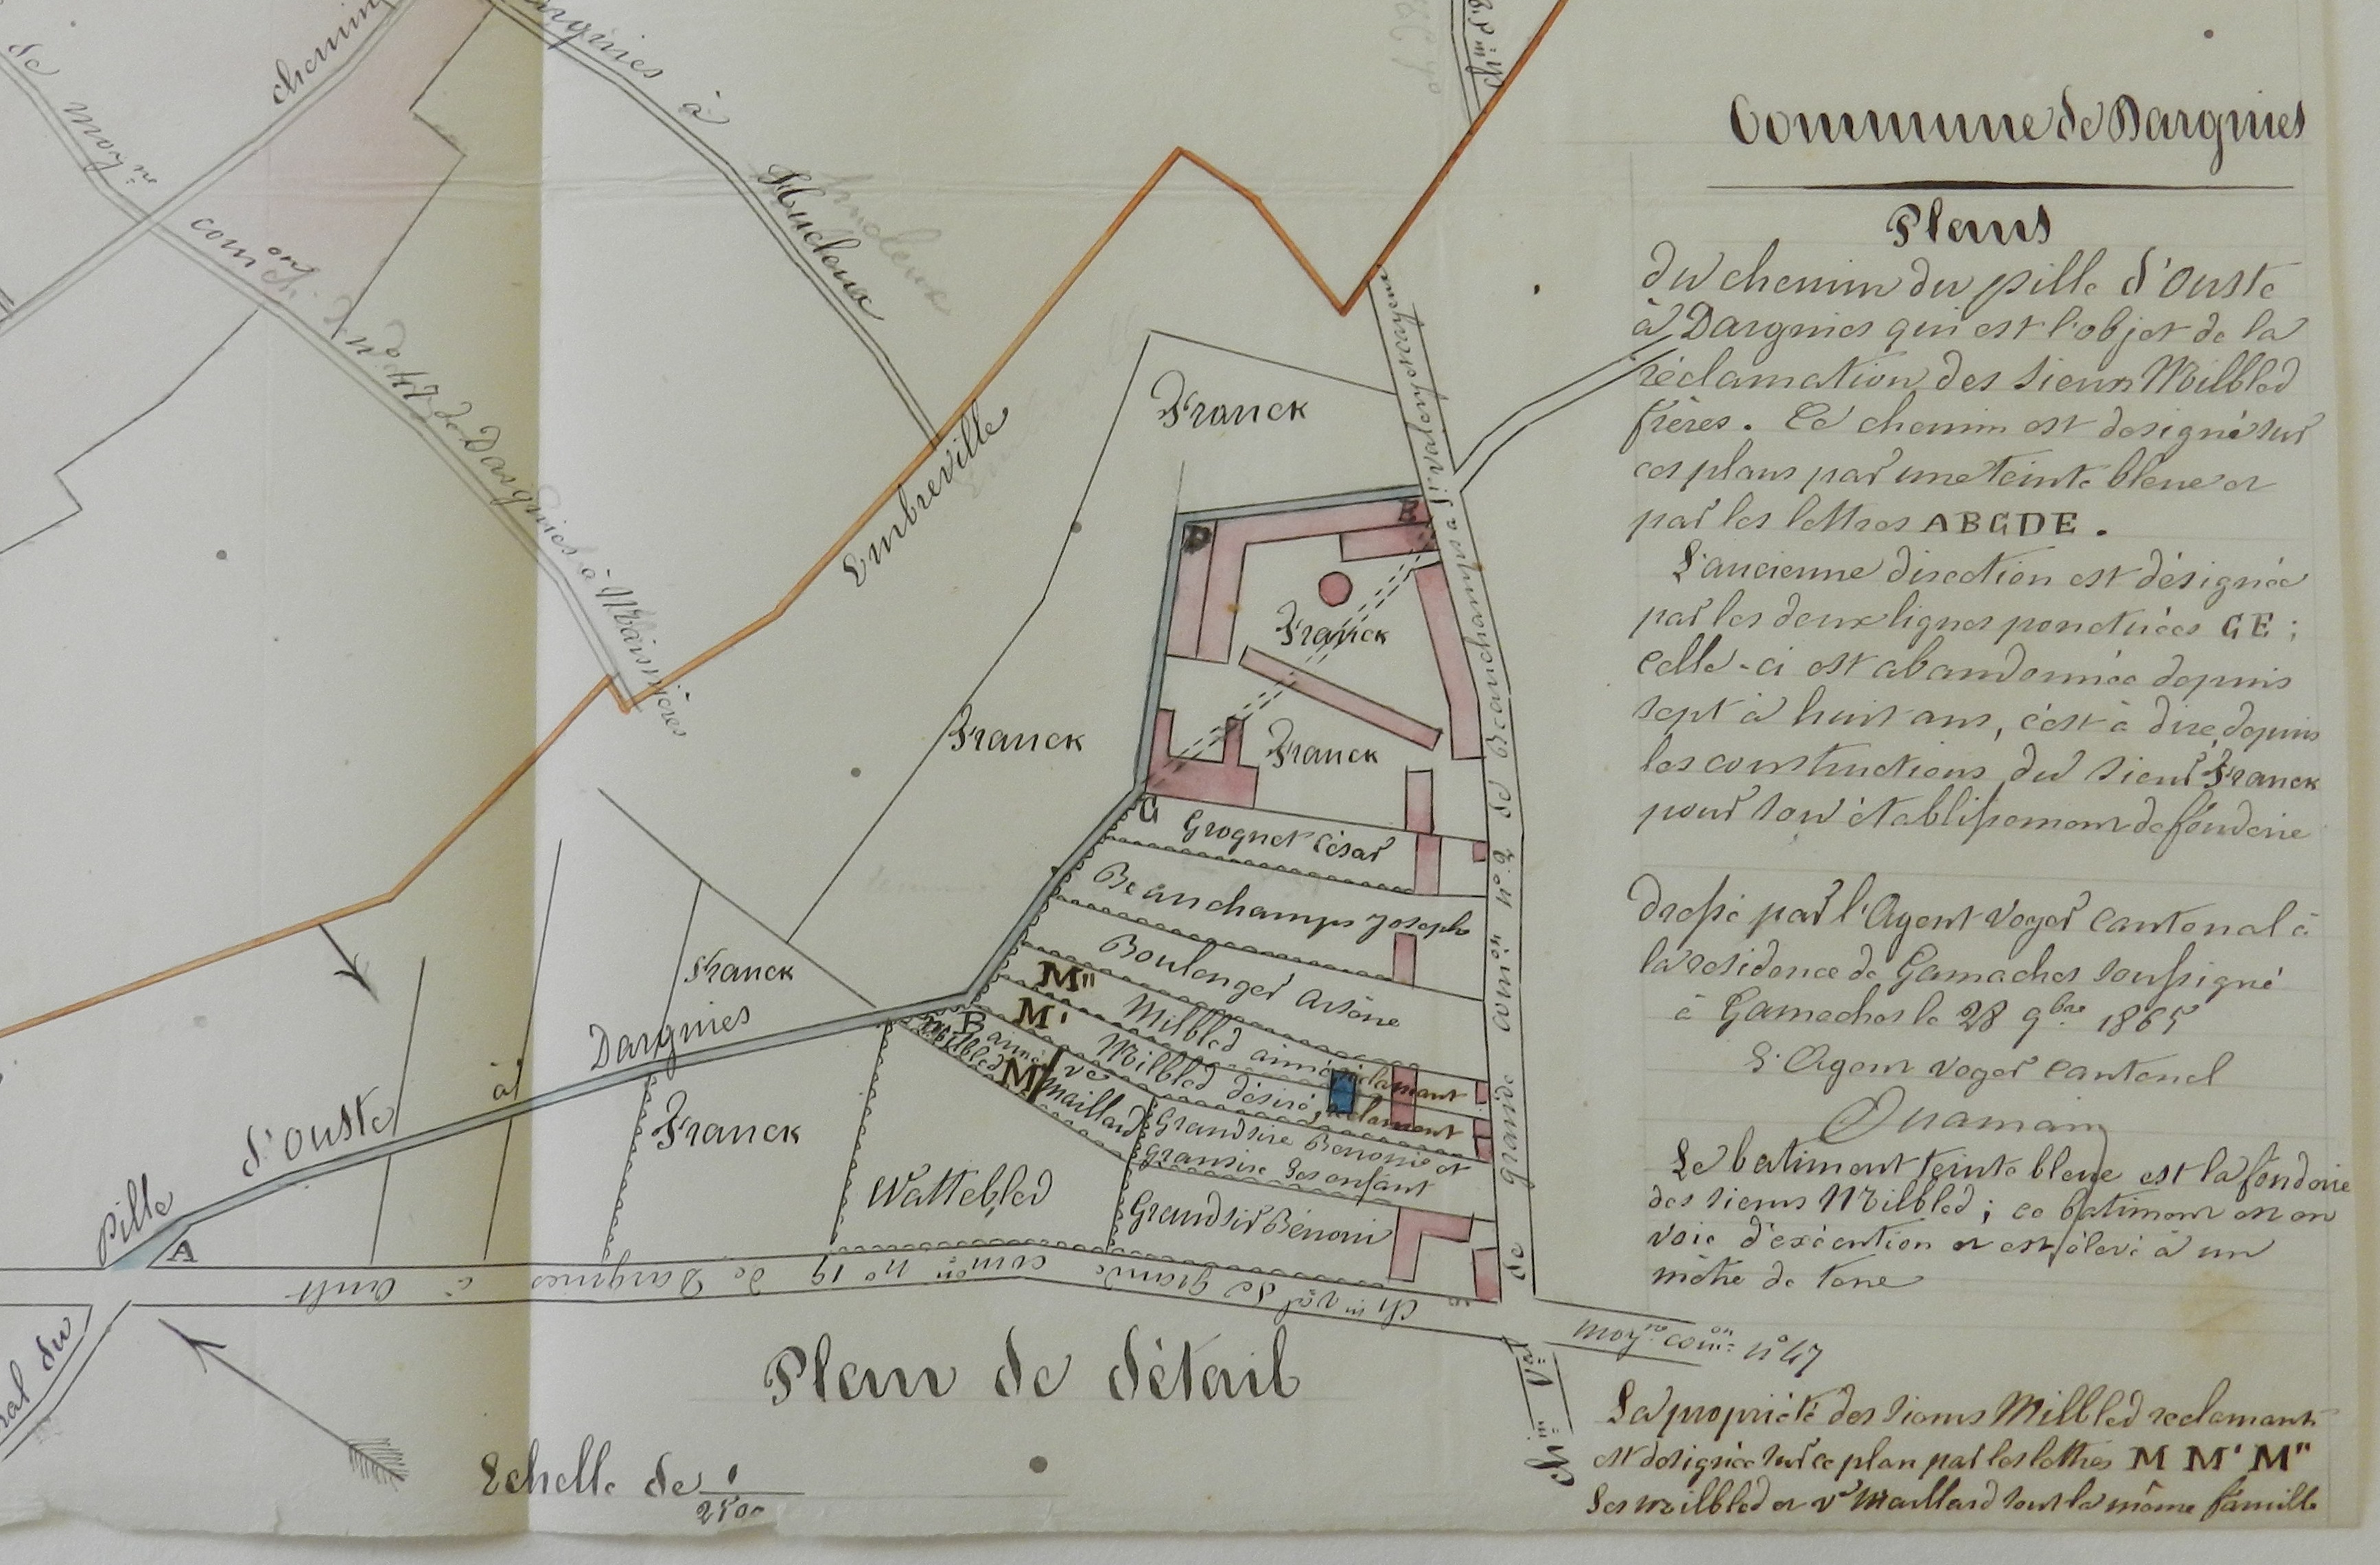 Commune de Dargnies
Plans
du chemin du pille d'Ouste
à Dargnies qui est l'objet de la
réclamation des sieurs Milbled
frères. Ce chemin est désigné sur
ces plans par une teinte bleue et
par les lettres ABCDE.
L'ancienne direction est désignée
par les deux lignes ponctuées CE ;
celle-ci est abandonnée depuis
sept à huit ans, c'est à dire, depuis
les constructions du sieur Franck
pour son établissement de fonderie
dressé par l'Agent Voyer cantonal à
la résidence de Gamaches soussigné
à Gamaches le 28 9bre 1865
L'Agent voyer cantonal
Le batiment teinte bleue est la fonderie
des sieurs Milbled ; ce batiment est en
voie d'exécution et est élevé à un
mètre de terre
La propriété des sieurs Milbled reclamant
est désignée sur ce plan par les lettres M M' M"
Les milbled et ve Maillard sont la même famille
chemin
de moyne
comon
n° 47 de Dargnies à Maisnières
argnies à Hucleux
Embreville
chin d
Franck
Franck
Franck
Franck
Franck
Franck
D
E
C
B
A
Grognet César
Beauchamps Joseph
Boulenger Arsène
M"
Milbled aimé réclamant
M'
Milbled désiré, réclamant
M
milbled aimé
ve maillard
Grandsire Benonie et
gransire ses enfant
Grandsir Bénoni
Wattebled
Pille d'Ouste à Dargnies
Chin val de grande comon n° 19 de Dargnies à Ault
de grande comon n° 2 de Beauchamps à St valery
moyne comon n° 47
Chin Val
ral du
Plan de détail
Echelle de 1/2500